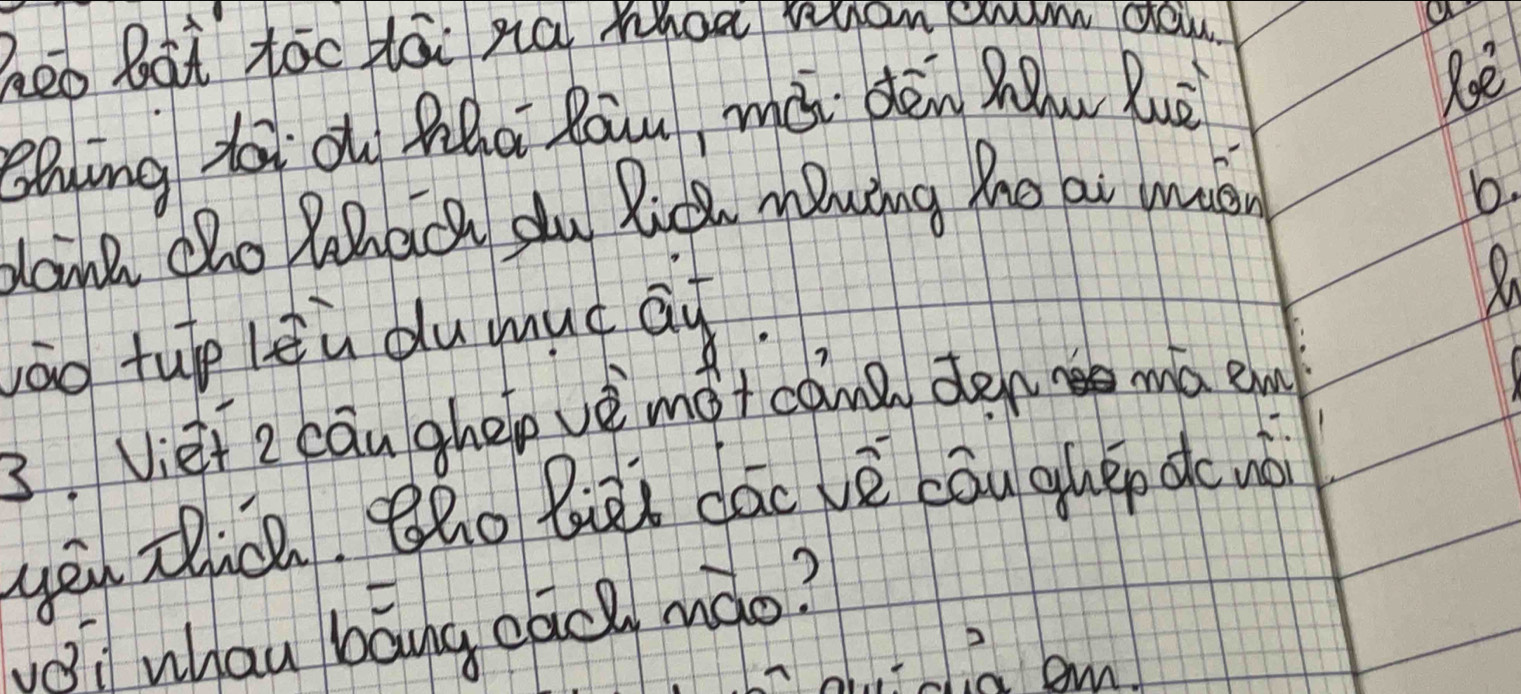 kéo bật tóc tôi ra khỏi
Chúng tôi đi khá lâu, mới đến khu lều
dành cho khách du lịch nhưng kho ai muốn
vào túp lều du mục ấy.
3. Viết 2 câu ghép về một cảnh đẹp mà em
yêu thích. Cho biết các vế câu ghép đc nối
với nhau bằng cách nào?
của em.
lẻ
b.